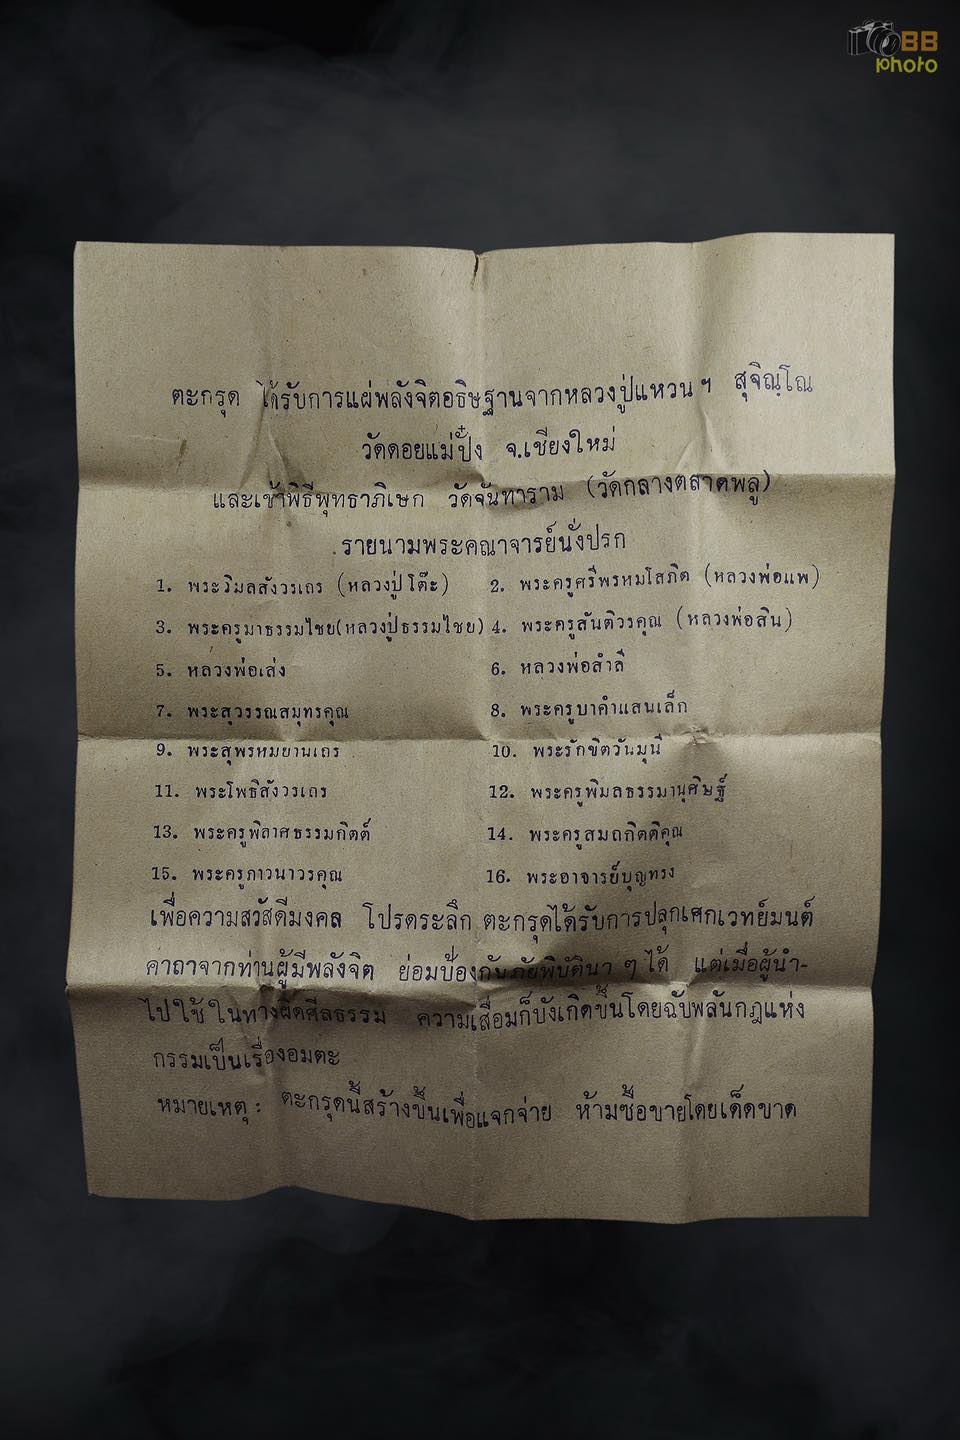 BB
photo
ตะกรุด ได้รับการแผ่พลังจิตอธิษฐานจากหลวงปู่แหวน ฯ สุจิณฺโณ
วัดดอยแม่ปั๋ง จ.เชียงใหม่
และเข้าพิธีพุทธาภิเษก วัดจันทาราม (วัดกลางตลาดพลู)
รายนามพระคณาจารย์นั่งปรก
1. พระวิมลสังวรเถร (หลวงปู่โต๊ะ) 2. พระครูศรีพรหมโสภิต (หลวงพ่อแพ)
3. พระครูมาธรรมไชย(หลวงปู่ธรรมไชย) 4. พระครูสันติวรคุณ (หลวงพ่อสิน)
5. หลวงพ่อเส่ง 6. หลวงพ่อสำลี
7. พระสุวรรณสมุทรคุณ 8. พระครูบาคำแสนเล็ก
9. พระสุพรหมยานเถร 10. พระรักขิตวันมุนี
11. พระโพธิสังวรเถร 12. พระครูพิมลธรรมานุศิษฐ์
13. พระครูพิลาศธรรมกิตต์ 14. พระครูสมถกิตติคุณ
15. พระครูภาวนาวรคุณ 16. พระอาจารย์บุญทรง
เพื่อความสวัสดีมงคล โปรดระลึก ตะกรุดได้รับการปลุกเศกเวทย์มนต์
คาถาจากท่านผู้มีพลังจิต ย่อมป้องกันภัยพิบัตินา ๆ ได้ แต่เมื่อผู้นำ-
ไปใช้ในทางผิดศีลธรรม ความเสื่อมก็บังเกิดขึ้นโดยฉับพลันกฎแห่ง
กรรมเป็นเรื่องอมตะ
หมายเหตุ : ตะกรุดนี้สร้างขึ้นเพื่อแจกจ่าย ห้ามซื้อขายโดยเด็ดขาด